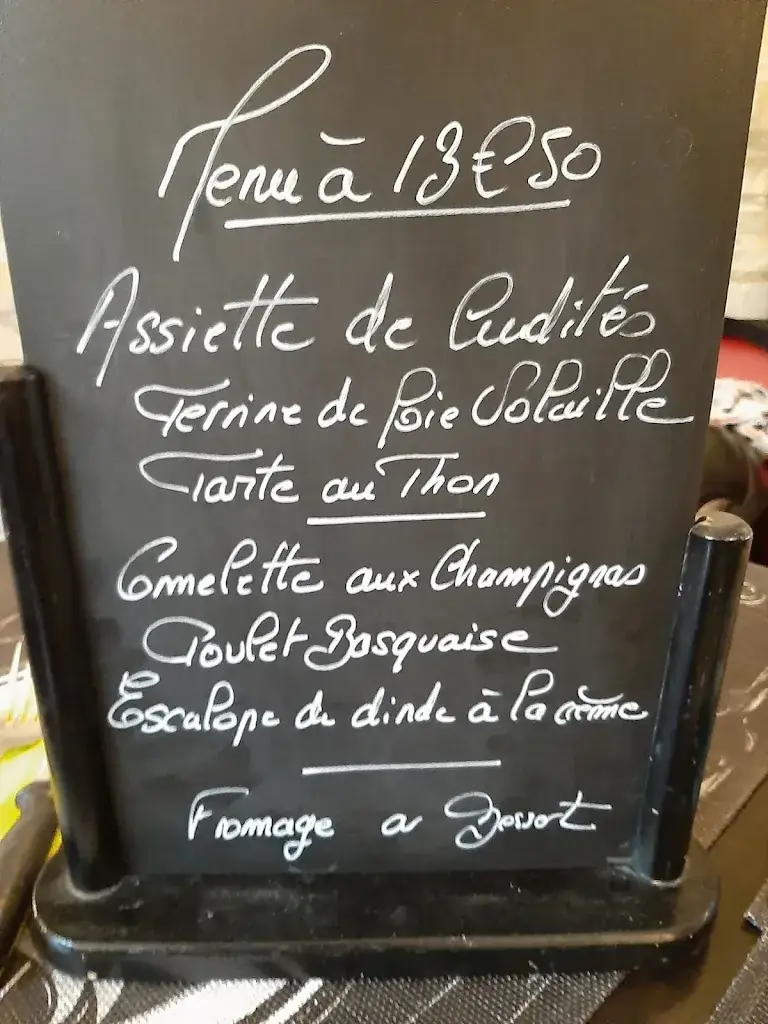 Menu à 13€50
Assiette de Cudités
Terrine de foie Volaille
Tarte au Thon
Ommelette aux Champignos
Poulet Basquaise
Escalope de dinde à la crème
Fromage ou Dessert